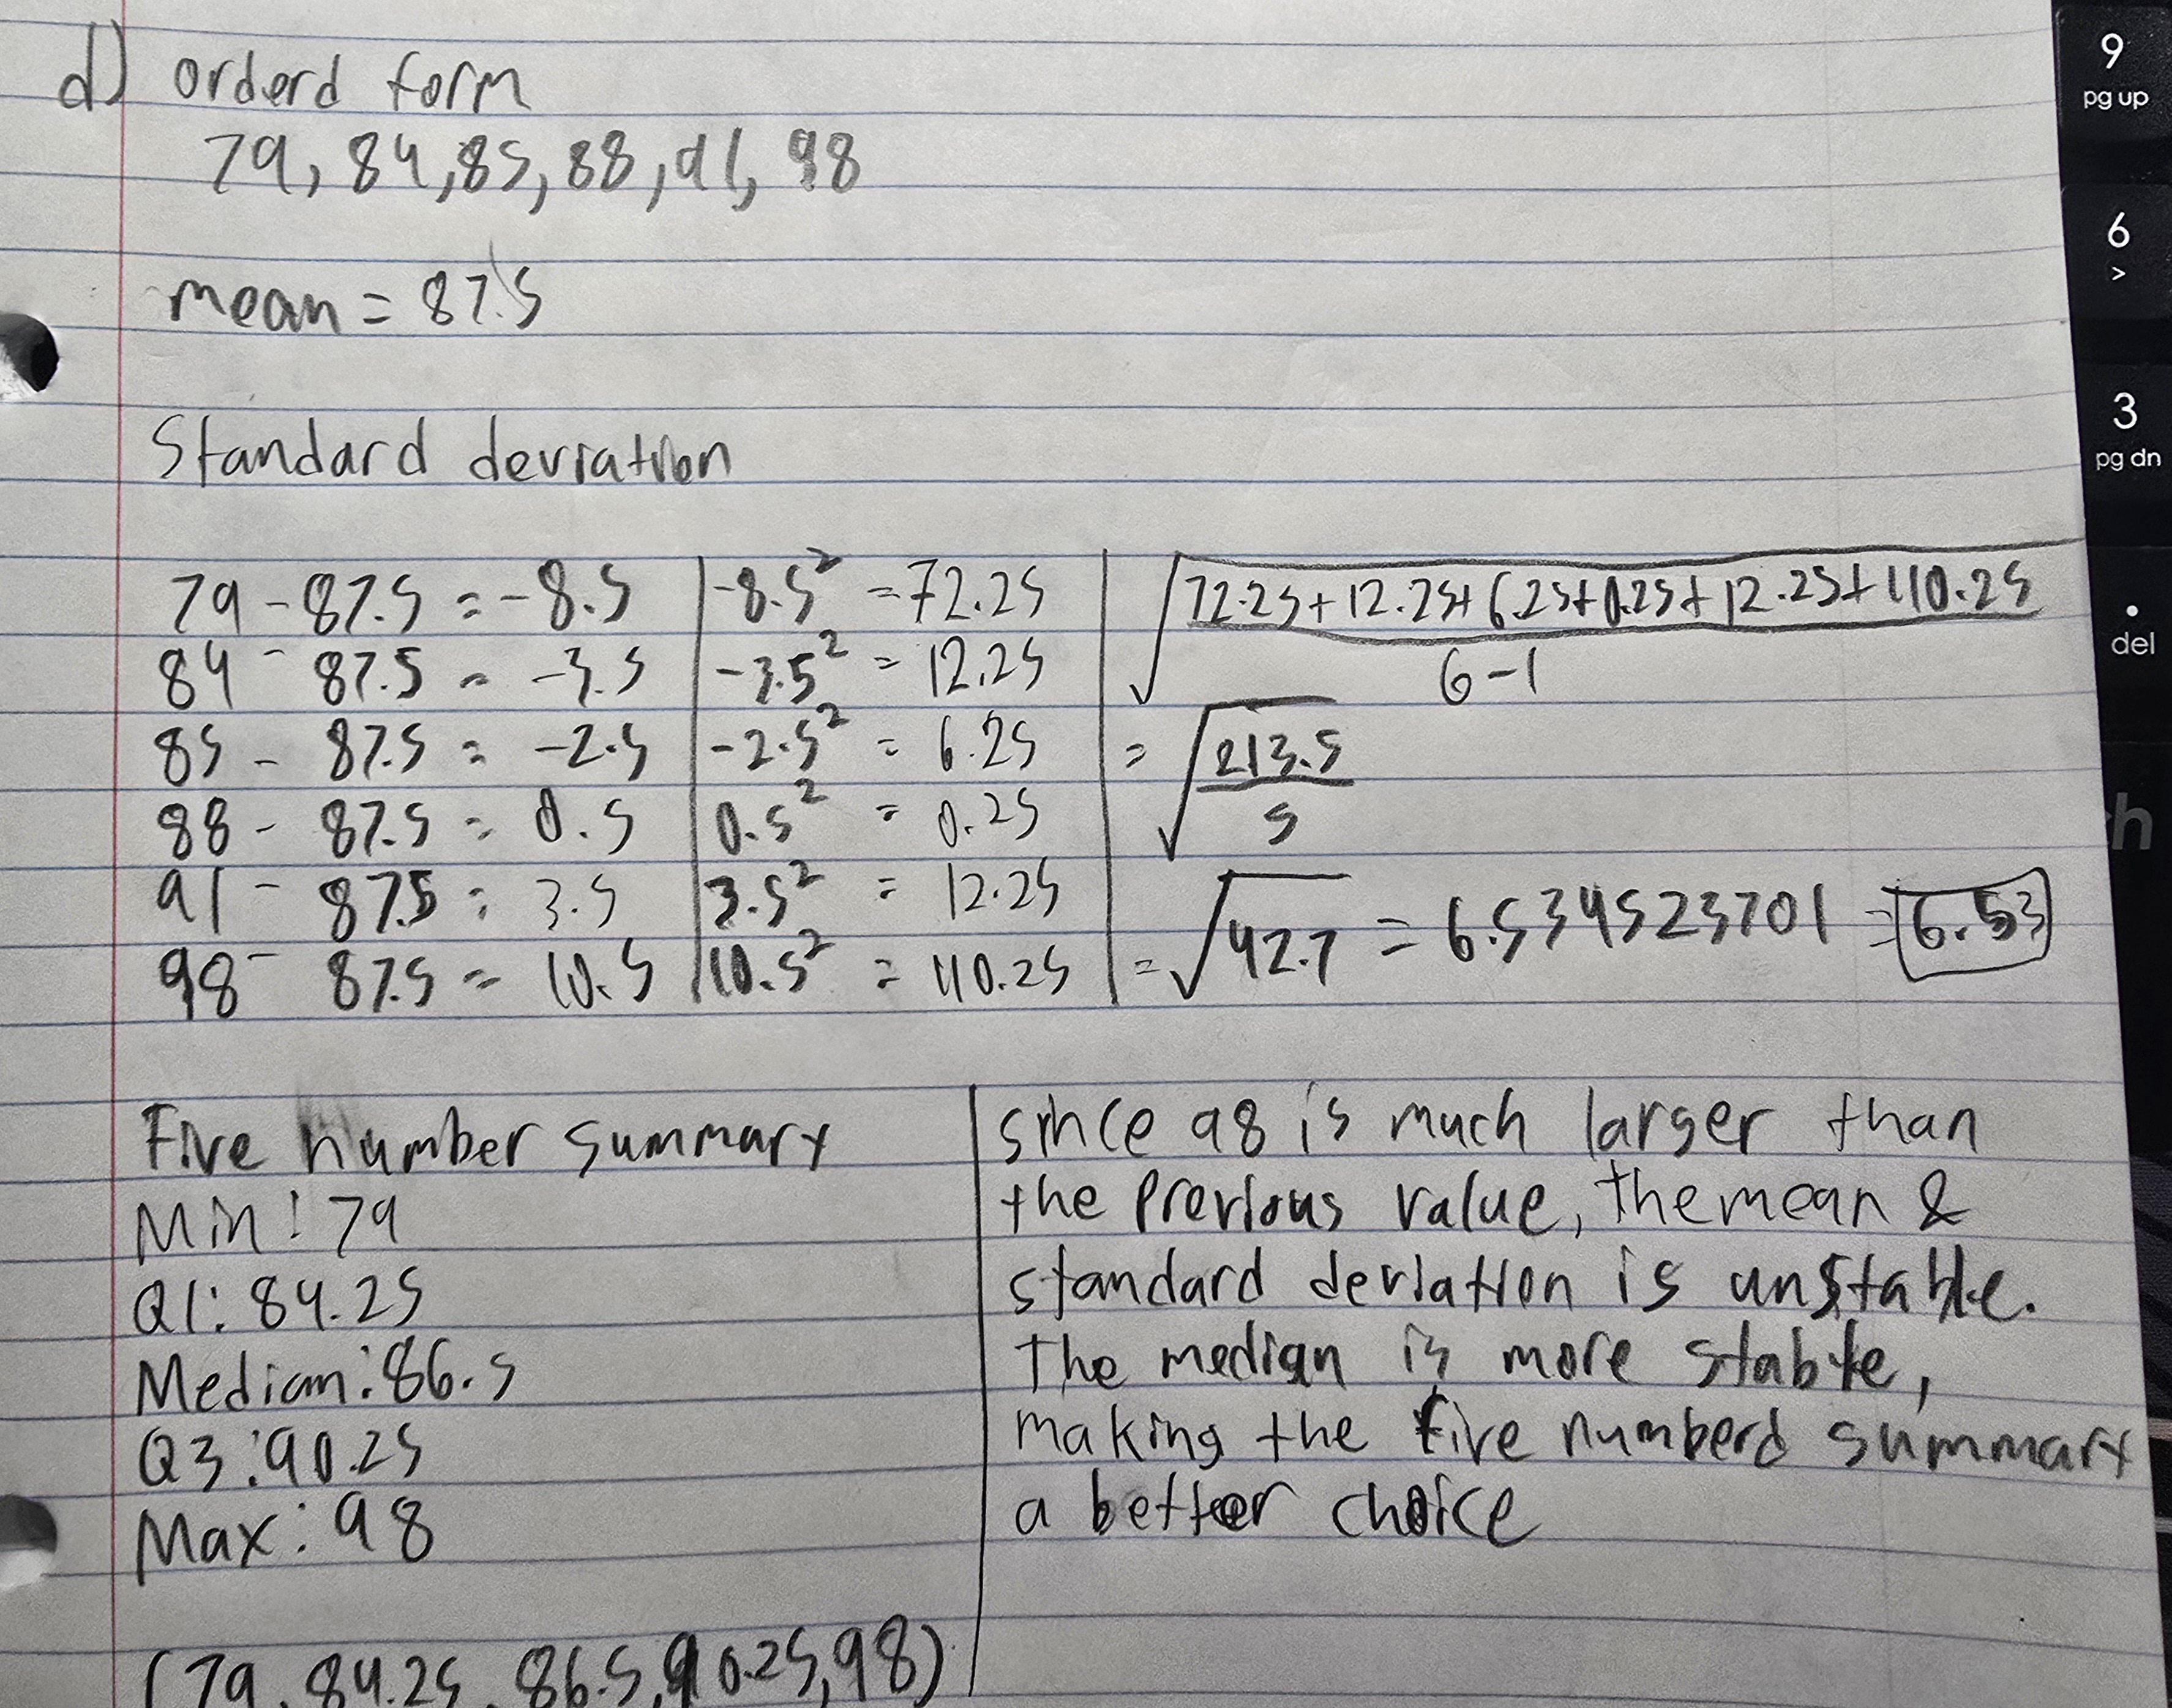 d) orderd form
79, 84, 85, 88, 91, 98
mean = 87.5
Standard deviation
79 - 87.5 = -8.5 | -8.5² = 72.25
84 - 87.5 = -3.5 | -3.5² = 12.25
85 - 87.5 = -2.5 | -2.5² = 6.25
88 - 87.5 = 0.5 | 0.5² = 0.25
91 - 87.5 = 3.5 | 3.5² = 12.25
98 - 87.5 = 10.5 | 10.5² = 110.25
√(72.25+12.25+6.25+0.25+12.25+110.25
6-1)
= √(213.5
5)
= √42.7 = 6.534523701 = 6.53
Five number summary
Min: 79
Q1: 84.25
Median: 86.5
Q3: 90.25
Max: 98
(79, 84.25, 86.5, 90.25, 98)
since 98 is much larger than
the previous value, the mean &
standard deviation is unstable.
The median is more stable,
making the five numberd summary
a better choice
9
pg up
6
>
3
pg dn
.
del
h